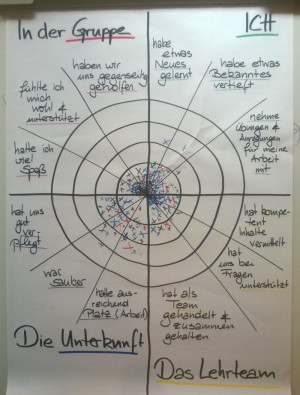 In der Gruppe
ICH
haben wir
uns gegenseitig
geholfen
fühlte ich
mich
wohl &
unterstützt
hatte ich
viel
Spaß
habe
etwas
Neues
gelernt
habe etwas
Bekanntes
vertieft
nehme
Übungen &
Anregungen
für meine
Arbeit
mit
hat uns
gut
ver-
pflegt
war
sauber
hatte aus-
reichend
Platz (Arbeit)
Die Unterkunft
hat kompe-
tent
Inhalte
vermittelt
hat
uns bei
Fragen
unterstützt
hat als
Team
gehandelt &
zusammen
gehalten
Das Lehrteam